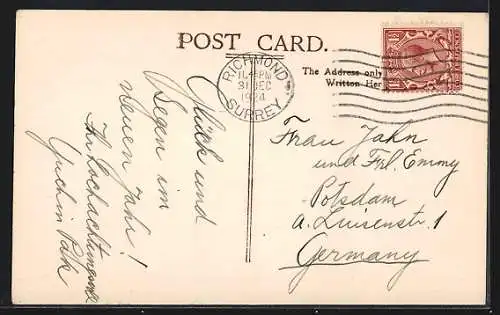 POST CARD.
RICHMOND
11.45PM
31 DEC
1924
SURREY
The Address only
Written Her
Glück und
Segen im
neuen Jahr!
Ihr hochachtungsvoll
Frau Jahn
und Frl. Emmy
Potsdam
a. Luisenstr. 1
Germany